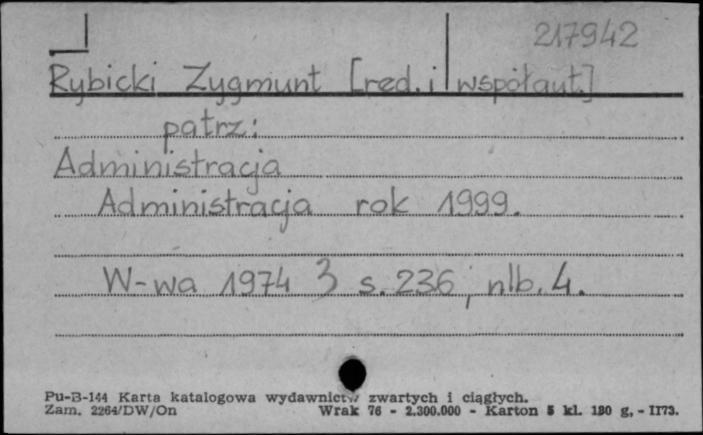 217942
Rybicki Zygmunt [red. i współaut.]
patrz:
Administracja
Administracja rok 1999.
W-wa 1974 3 s. 236, nlb. 4.
Pu-B-144 Karta katalogowa wydawnictw zwartych i ciągłych.
Zam. 2264/DW/On Wrak 76 - 2.300.000 - Karton 5 kl. 180 g, - II73.